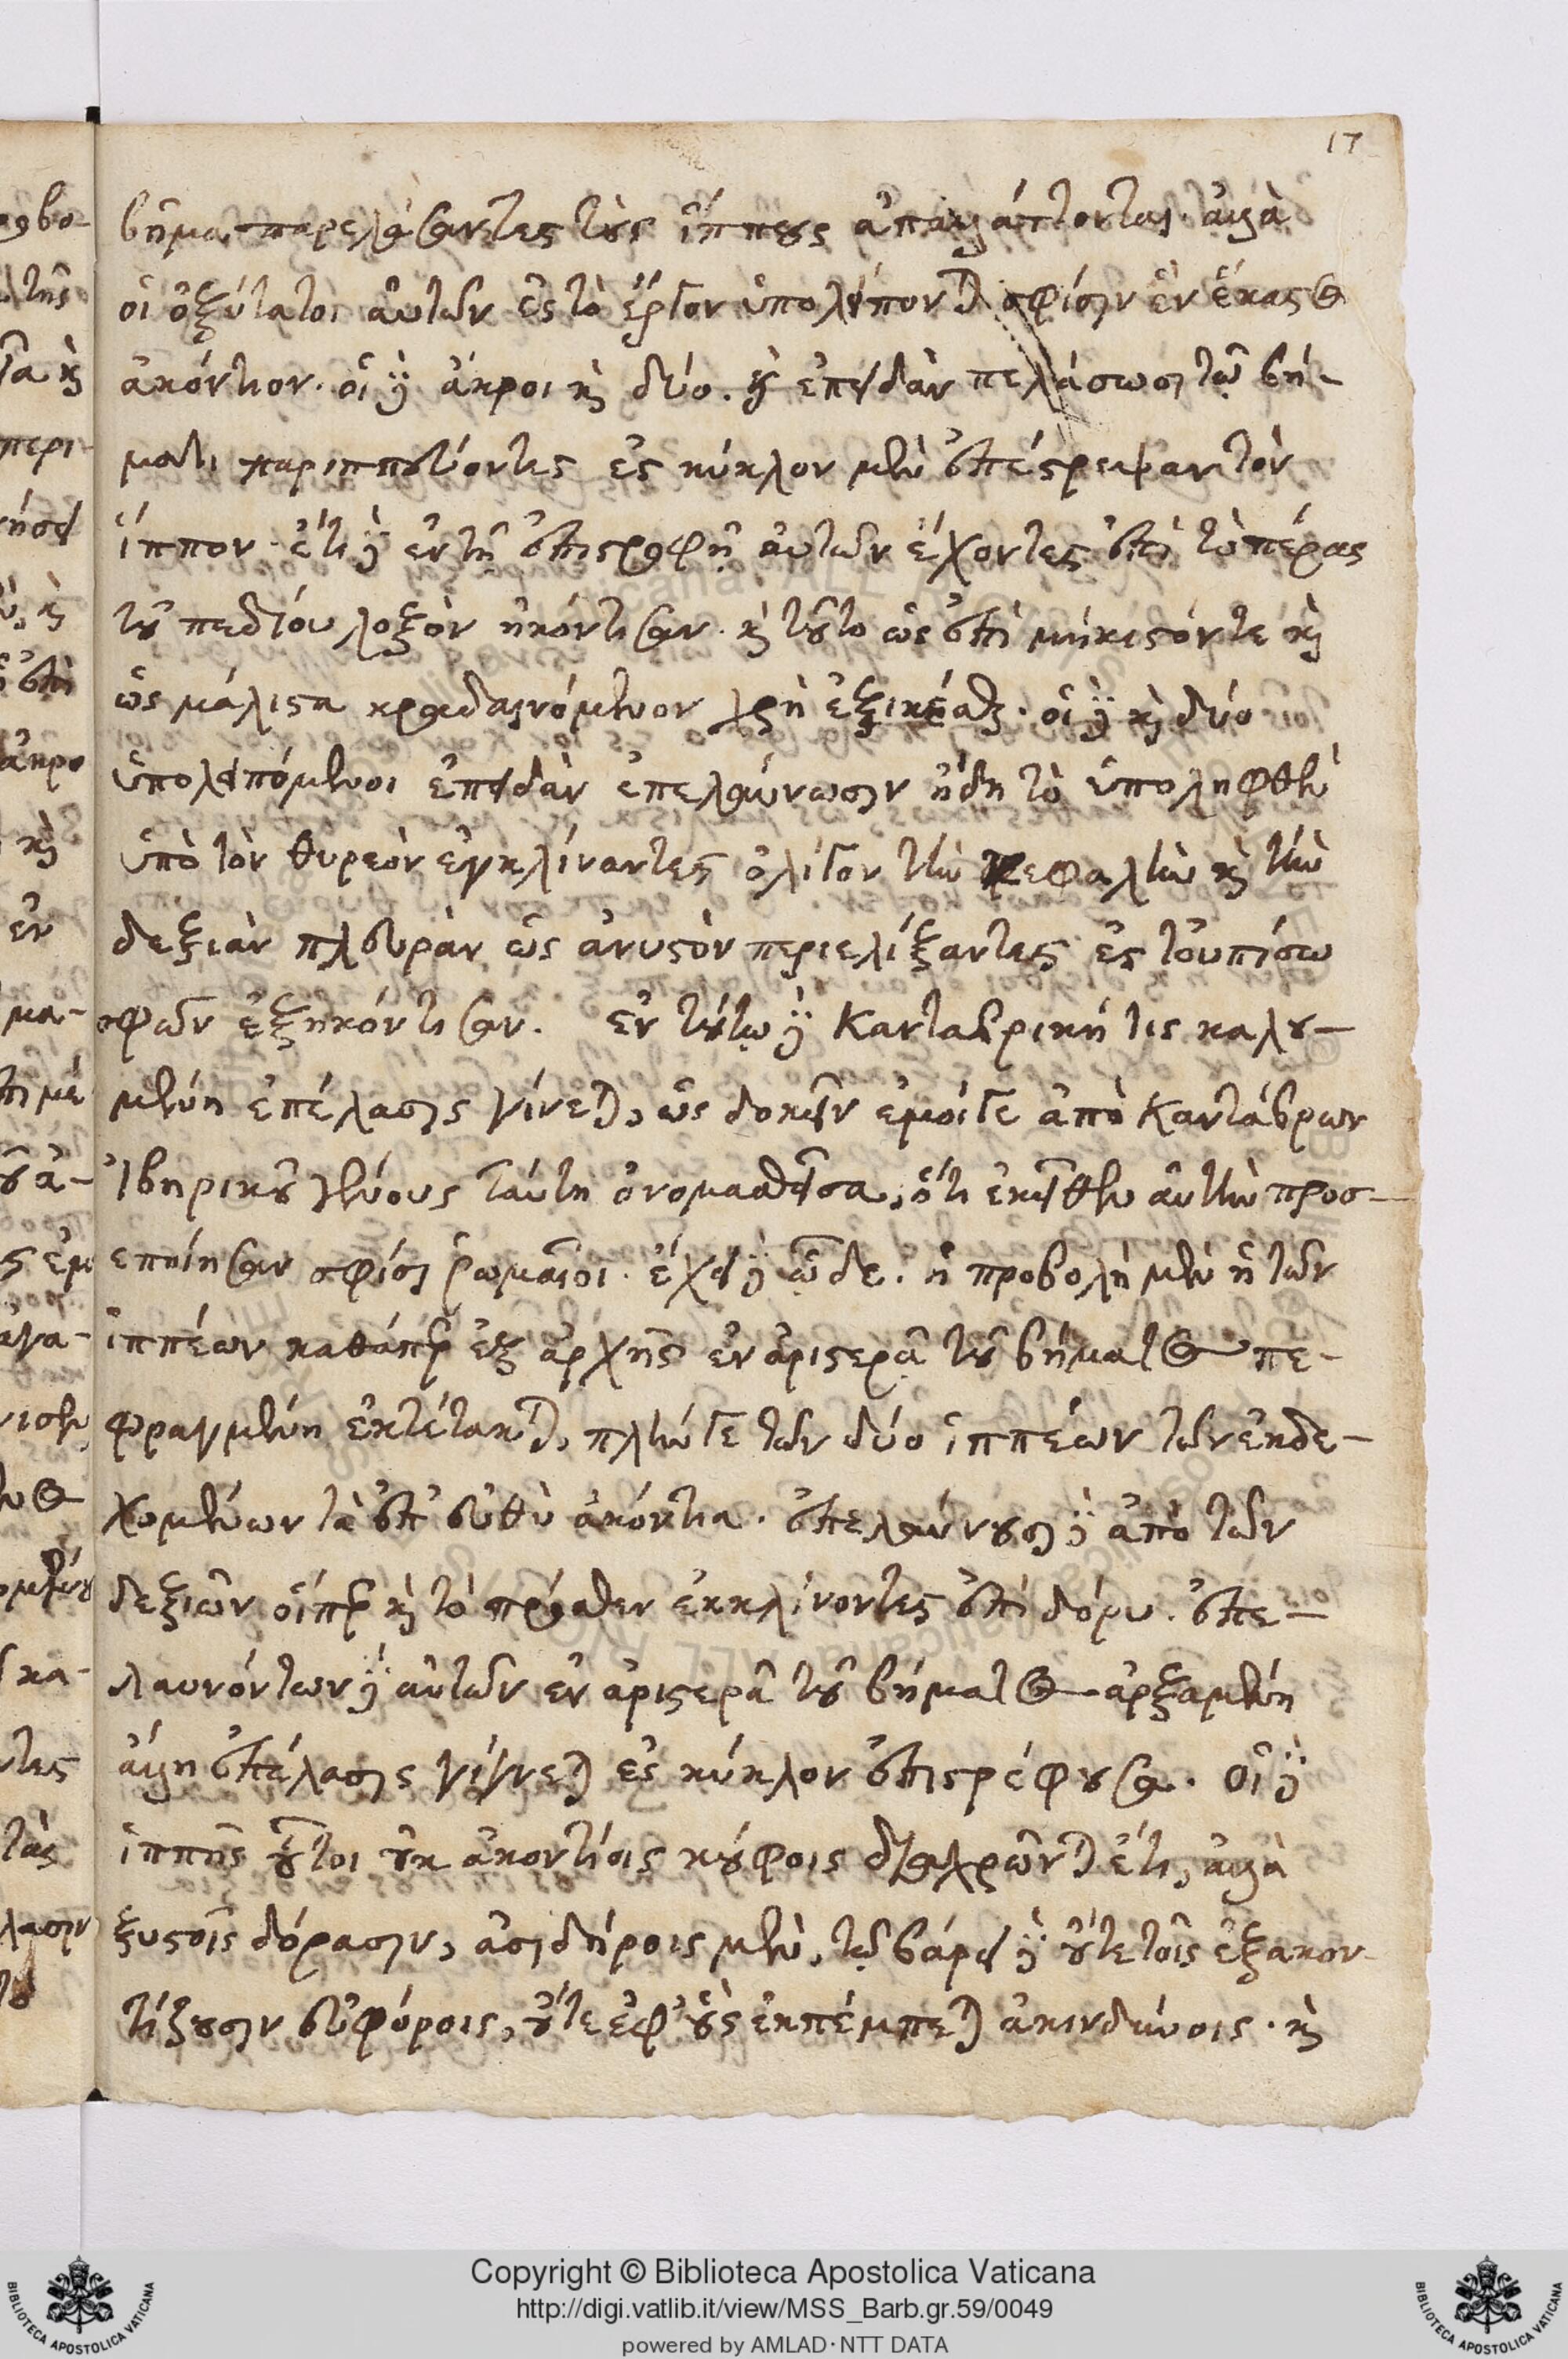 17
βῆμα, παρελάσαντες τοὺς ἵππους ἀπαλλάττονται. ἀλλὰ
οἱ ὀξύτατοι αὐτῶν ἐς τὸ ἔργον ὑπολείπονται σφίσιν ἓν ἕκαστος
ἀκόντιον. οἱ δὲ ἄκροι καὶ δύο. καὶ ἐπειδὰν πελάσωσι τῷ βή-
ματι παριππεύοντες ἐς κύκλον μὲν ἐπέστρεψαν τὸν
ἵππον. ἔτι δὲ ἐν τῇ ἐπιστροφῇ αὐτῶν ἔχοντες ἐπὶ τὸ πέρας
τοῦ πεδίου λοξὸν ἠκόντισαν. καὶ τοῦτο ὡς ἐπὶ μήκιστόν τε καὶ
ὡς μάλιστα κραδαινόμενον χρὴ ἐξικέσθαι. οἱ δὲ καὶ δύο
ὑπολειπόμενοι ἐπειδὰν ἐπελαύνωσιν ἤδη τὸ ὑποληφθὲν
ὑπὸ τὸν θυρεὸν ἐγκλίναντες ὀλίγον τὴν κεφαλὴν καὶ τὴν
δεξιὰν πλευρὰν ὡς ἀνυστὸν περιελίξαντες ἐς τοὐπίσω
σφῶν ἐξηκόντισαν. ἐν τούτῳ δὲ Κανταβρική τις καλου-
μένη ἐπέλασις γίνεται, ὡς δοκεῖν ἐμοίγε ἀπὸ Καντάβρων
Ἰβηρικοῦ γένους ταύτῃ ὀνομασθεῖσα, ὅτι ἐκεῖθεν αὐτὴν προσ-
εποίησαν σφίσι ῥωμαῖοι. ἔχει δὲ ὧδε. ἡ προβολὴ μὲν ἡ τῶν
ἱππέων καθάπερ ἐξ ἀρχῆς ἐν ἀριστερᾷ τοῦ βήματος πε-
φραγμένη ἐκτέτακται, πλήν γε τῶν δύο ἱππέων τῶν ἐκδε-
χομένων τὰ ἐπ' εὐθὺ ἀκόντια. ἐπελαύνουσι δὲ ἀπὸ τῶν
δεξιῶν οἵπερ καὶ τὸ πρόσθεν ἐκκλίνοντες ἐπὶ δόρυ. ἐπε-
λαυνόντων δὲ αὐτῶν ἐν ἀριστερᾷ τοῦ βήματος ἀρξαμένη
ἄλλη ἐπέλασις γίγνεται ἐς κύκλον ἐπιστρέφουσα. οἱ δὲ
ἱππῆς οὗτοι οὐκ ἀκοντίοις κούφοις διαχρῶνται ἔτι, ἀλλὰ
ξυστοῖς δόρασιν, ἀσιδήροις μὲν, τῷ βάρει δὲ οὔτε τοῖς ἐξακον-
τίζουσιν εὐφόροις, οὔτε ἐφ' οὓς ἐκπέμπεται ἀκινδύνοις. καὶ
Copyright © Biblioteca Apostolica Vaticana
http://digi.vatlib.it/view/MSS_Barb.gr.59/0049
powered by AMLAD·NTT DATA
BIBLIOTECA APOSTOLICA VATICANA
BIBLIOTECA APOSTOLICA VATICANA